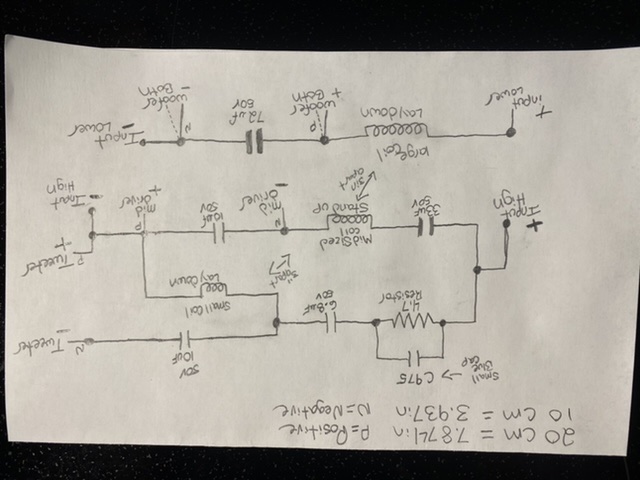 20 cm = 7.874in P=Positive
10 cm = 3.937in N=Negative
Small
Blue
Cap
→ C975
50V
10uF
4.7
Resistor
6.8uF
50V
Small coil
Lay down
N
Tweeter
−
+
Input
High
33uF
50V
Mid Sized
coil
Stand up
3in
apart
3"
apart
N
mid
driver
−
10uF
50V
P
mid
driver
+
P Tweeter
+
−
Input
High
large coil
Lay down
+
input
Lower
P
woofer
+ Both
72uf
50V
N
woofer
− Both
Input −
Lower